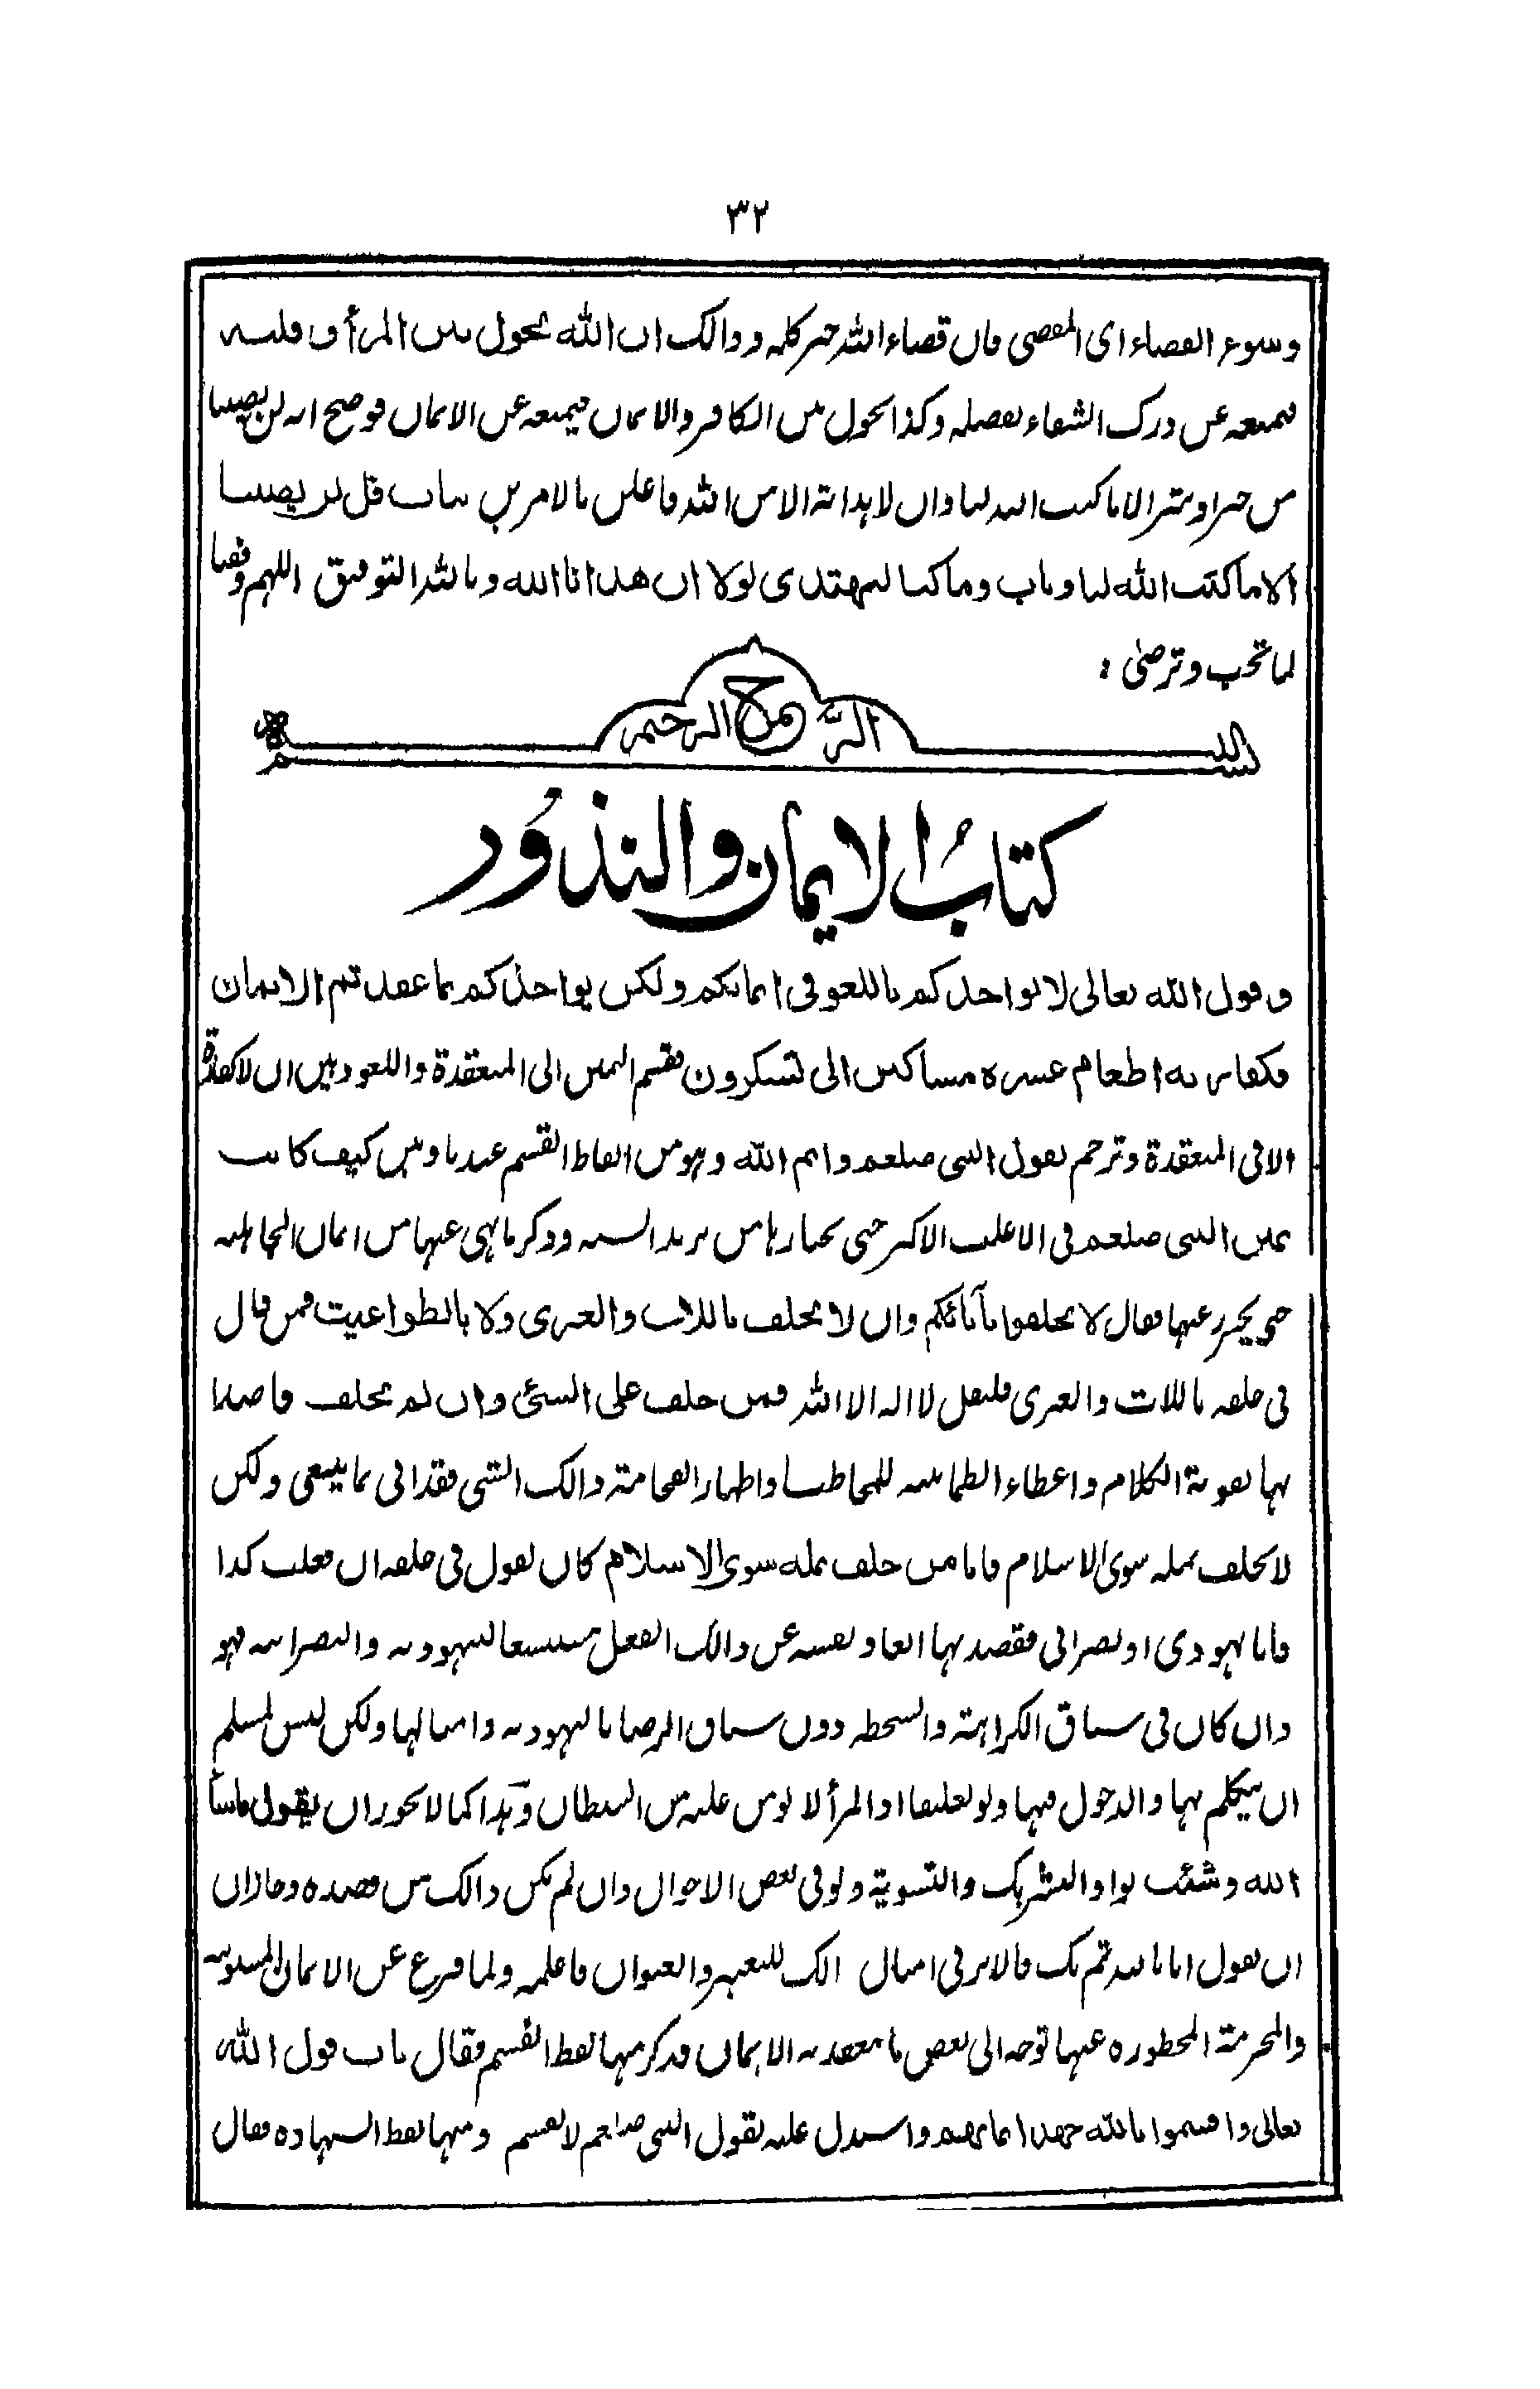 ٣٢
وسوء القضاء ای المقضی فان قضاء اللہ خیر کله و ذالک ان الله یحول بین المرأ و قلبه
فیمنعه عن درک الشقاء بفضله وکذا یحول بین الکافر والایمان فیمنعه عن الایمان فوضح انه لن یصیبنا
من خیر او شر الا ما کتب الله لنا وان لا هدایة الا من اللہ فاعلن بالامرین بباب قل لن یصیبنا
الا ما کتب الله لنا وباب وما کنا لنهتدی لولا ان هدانا الله وباللہ التوفیق اللهم وفقنا
لما تحب وترضیٰ :
بسم الله الرحمن الرحیم
کتابُ الایمان والنذُور
وقول الله تعالی لا یواخذکم باللغو فی ایمانکم ولکن یواخذکم بما عقدتم الایمان
فکفارته اطعام عشره مساکین الی تشکرون فقسم الیمین الی المنعقدة واللغو وبین ان لا کفارة
الا فی المنعقدة وترجم بقول النبی صلعم وایم الله وهو من الفاظ القسم عندنا وبین کیف کانت
یمین النبی صلعم فی الاغلب الاکثر حتی یختارها من یرید السنه وذکر ما نهی عنها من ایمان الجاهلیه
حتی یحترز عنها فقال لا تحلفوا بآبائکم وان لا یحلف باللات والعزی ولا بالطواغیت فمن قال
فی حلفه باللات والعزی فلیقل لا اله الا اللہ فمن حلف علی الشئ وان لم یحلف قاصدا
بها تقویة الکلام واعطاء الطمانینه للمخاطب واظهار الفخامة ذالک الشی فقد اتی بما ینبغی ولکن
لا یحلف بمله سوی الاسلام فاما من حلف بمله سوی الاسلام کان یقول فی حلفه ان فعلت کذا
فانا یهودی او نصرانی فقصد بها ابعاد نفسه عن ذالک الفعل مستبشعا للیهودیه والنصرانیه فهو
وان کان فی سیاق الکراهة والسخطه دون سیاق الرضا بالیهودیه وامثالها ولکن لیس لمسلم
ان یتکلم بها والدخول فیها ولو تعلیقا اذ المرأ لا یومن علیه من الشیطان وهذا کما لا یجوز ان یقول ما شاء
الله وشئت بواو التشریک والتسویة ولو فی بعض الاحوال وان لم یکن ذالک من قصده وجاز ان
ان یقول انا باللہ ثم بک فالامر فی امثال الک للتعبیر والعنوان فاعلمه ولما فرغ عن الایمان المسنونه
والمحرمة المحظوره عنها توجه الی بعض ما ینعقد به الایمان فذکر منها لفظ القسم فقال باب قول الله
تعالی واقسموا بالله جهد ایمانهم واستدل علیه بقول النبی صلعم لا تقسم ومنها لفظ الشهاده فقال